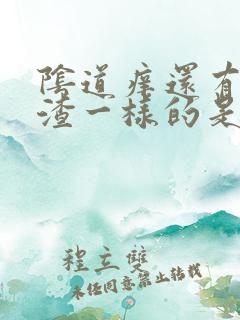 陰道痒還有
渣一樣的是
程立雙
未经同意禁止转载